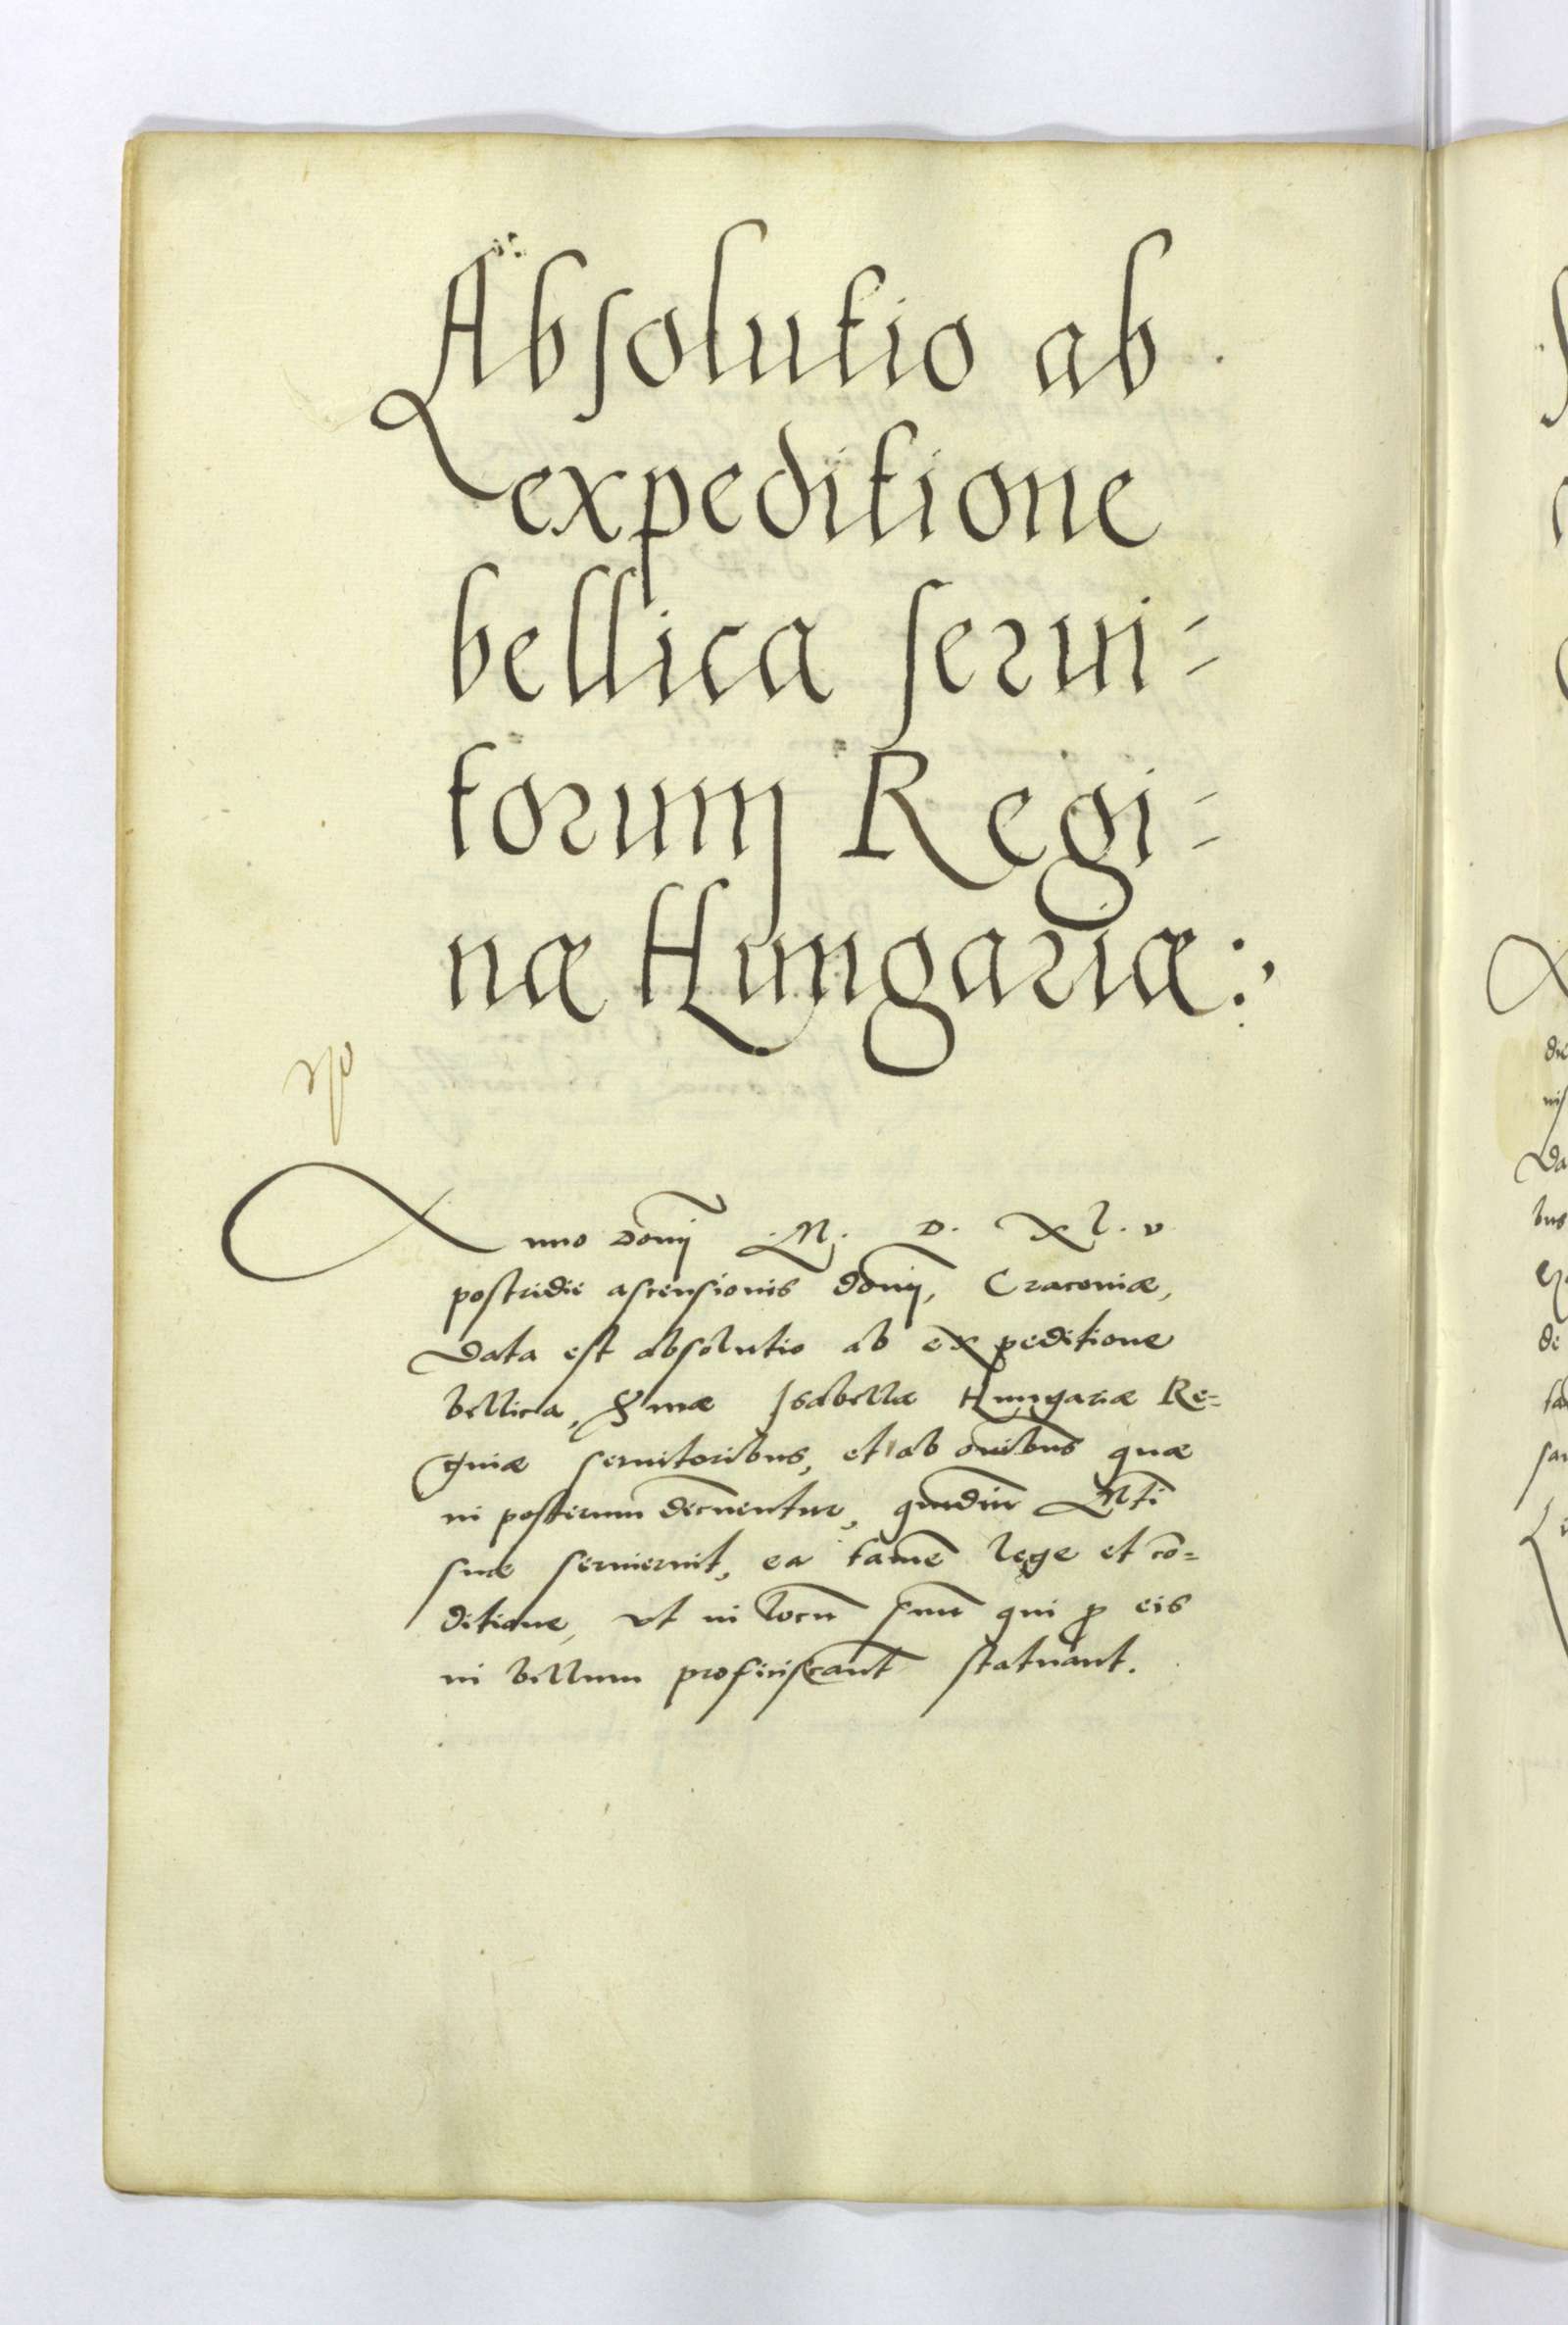 Absolutio ab
expeditione
bellica serui=
torum Regi=
næ Hungariæ:
Anno Domī M. D. Xl. v
postridie ascensionis domī, Cracouiæ,
Data est absolutio ab expeditione
bellica, S. mæ Isabellæ Hungariæ Re=
ginæ seruitoribus, et ab oībus quæ
in posterum decnentur, qudiu Mti
suæ seruierint, ea tamē lege et cō=
ditione, vt in locū suū qui p eis
in bellum proficiscant statuant.